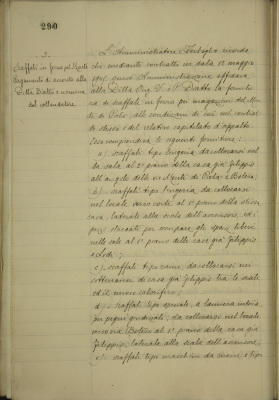 290
3.
Scaffali in ferro pel Monte
Pagamenti di acconto alla
Ditta Diatto e nomina
del collaudatore
L'Amministratore ricorda
che mediante contratto in data 12 maggio
1915 questa Amministrazione affidava
alla Ditta Ing. Diatto la fornitu
ra di scaffali in ferro pei magazzini del Mon
te di Pietà alle condizioni di cui nel contrat
to stesso e del relativo capitolato d'appalto.
Essa comprendeva le seguenti forniture:
a). scaffali tipo lingeria, da collocarsi nel
la sala al 2° piano della casa già Filippis
all'angolo delle vie Monte di Pietà e Botero;
b). scaffali tipo lingeria, da collocarsi
nel locale verso corte al 1° piano della stessa
casa, laterale alla scala dell'ascensore, ed i
più staccati per occupare gli spazi liberi
nelle sale al 1° piano delle case già Filippis
e Lodi;
c). scaffali tipo rame, da collocarsi nei
sotterranei di casa già Filippis tra le scale
ed il nuovo calorifero;
d). scaffali tipo speciale, a lamiera intiera
pei pegni giudiziali, da collocarsi nel locale
verso via Botero al 1° piano della casa già
Filippis, laterale alla scala dell'ascensore;
e). scaffali tipo macchine da cucire, e tipo